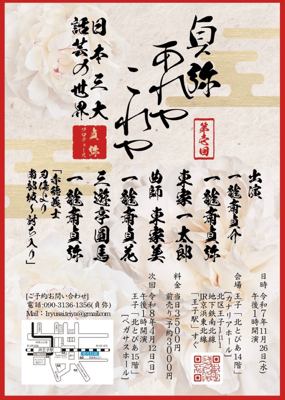 貞弥
あれや
これや
第壱回
日本三大
話芸の世界
貞弥
出演
一龍斎貞介
一龍斎貞弥
東家一太郎
曲師 東家美
一龍斎貞花
三遊亭圓馬
一龍斎貞弥
「赤穂義士
刃傷より
南部坂〜討ち入り」
日時 令和7年11月26日(水)
午後1時開演
会場 王子「北とぴあ14階」
(カナリアホール)
北区王子1-11-1
地下鉄南北線
JR京浜東北線
「王子駅」すぐ
料金 当日3500円
前売り予約3000円
次回 令和8年4月12日(日)
午後1時開演
王子「北とぴあ15階」
(ペガサスホール)
[ご予約お問い合わせ]
電話:090-3136-1356(貞弥)